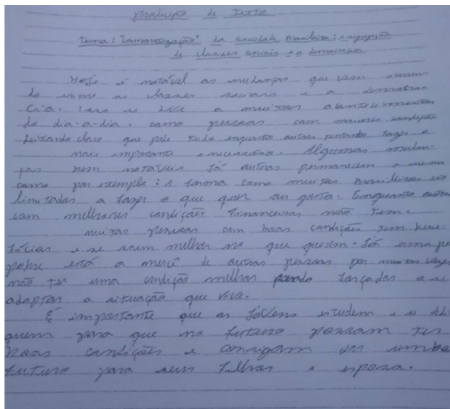 Produção de Texto
Tema: "Camarotização" da sociedade brasileira: a segregação
das classes sociais e a democracia
Hoje é notável as mudanças que vem
do entre as classes sociais e a democra-
cia. Isso se deve a muitos acontecimentos
do dia-a-dia, como pessoas com maiores condições
deixando claro que pode tudo enquanto outras
mais importante e necessário. Algumas mudan-
ças nem notáveis já outras permanecem a mesma
como por exemplo: a forma como muitos brasileiros são
limitados a fazer o que quer ou gosta. Enquanto outros
com melhores condições financeiras não tem.
muitas pessoas com boas condições tem bene-
fícios e se saem melhor no que querem. Já uma pe
pobre está a mercê de outras pessoas por muitas vezes
não ter uma condição melhor forçados a se
adaptar a situação que vive.
É importante que os jovens estudem e se
quem para que no futuro possam ter
boas condições e consigam um
futuro para seus filhos e esposa.